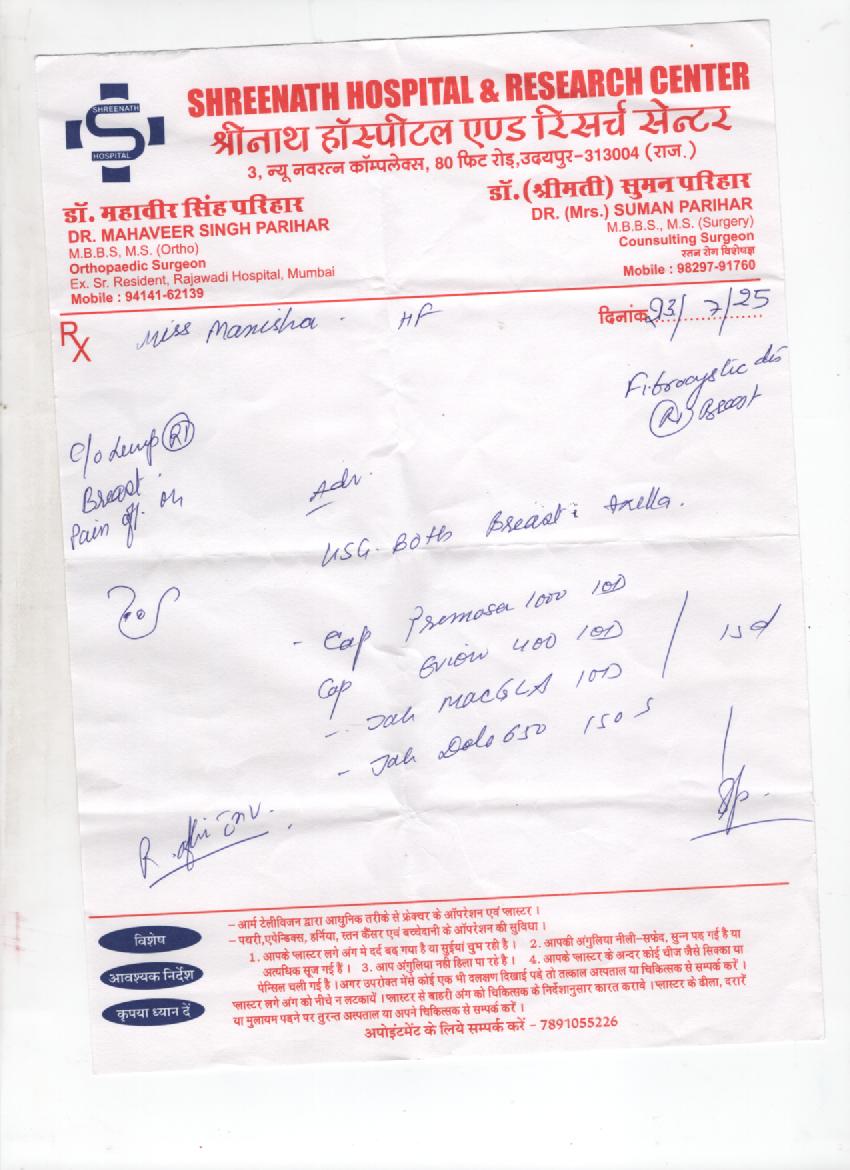 SHREENATH
HOSPITAL
SHREENATH HOSPITAL & RESEARCH CENTER
श्रीनाथ हॉस्पीटल एण्ड रिसर्च सेन्टर
3, न्यू नवरत्न कॉम्पलेक्स, 80 फिट रोड़, उदयपुर-313004 (राज.)
डॉ. महावीर सिंह परिहार
DR. MAHAVEER SINGH PARIHAR
M.B.B.S, M.S. (Ortho)
Orthopaedic Surgeon
Ex. Sr. Resident, Rajawadi Hospital, Mumbai
Mobile : 94141-62139
डॉ. (श्रीमती) सुमन परिहार
DR. (Mrs.) SUMAN PARIHAR
M.B.B.S., M.S. (Surgery)
Counsulting Surgeon
स्तन रोग विशेषज्ञ
Mobile : 98297-91760
Rx Miss Manisha. दिनांक 23/7/25
Fibrocystic dis
Rt Breast
c/o Lump Rt
Breast
Pain off. on
Adv.
USG. Both Breast Axella.
- Cap Premosa 1000 10D
Cap Evion 400 10D
- Tab MACGLA 10D
15d
- Tab Dolo 650 SOS
विशेष
आवश्यक निर्देश
कृपया ध्यान दें
– आर्म टेलीविजन द्वारा आधुनिक तरीके से फ्रेक्चर के ऑपरेशन एवं प्लास्टर ।
– पथरी, एपेन्डिक्स, हर्निया, स्तन कैंसर एवं बच्चेदानी के ऑपरेशन की सुविधा ।
1. आपके प्लास्टर लगे अंग मे दर्द बढ़ गया है या सुईयां चुभ रही है । 2. आपकी अंगुलिया नीली-सफेद, सुन्न पड़ गई है या
अत्यधिक सूज गई हैं । 3. आप अंगुलिया नही हिला पा रहे है । 4. आपके प्लास्टर के अन्दर कोई चीज जैसे सिक्का या
पेन्सिल चली गई है । अगर उपरोक्त मेंसे कोई एक भी दलक्षण दिखाई पडे तो तत्काल अस्पताल या चिकित्सक से सम्पर्क करें ।
प्लास्टर लगे अंग को नीचे न लटकायें । प्लास्टर से बाहरी अंग को चिकित्सक के निर्देशानुसार कारत करावे । प्लास्टर के ढीला, दरारें
या मुलायम पडने पर तुरन्त अस्पताल या अपने चिकित्सक से सम्पर्क करें ।
अपोइंटमेंट के लिये सम्पर्क करें - 7891055226